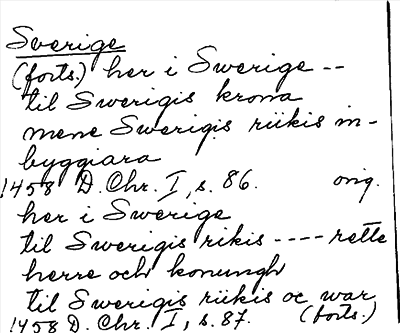 Sverige
(forts.) her i Swerige --
til Swerigis krona
mene Swerigis riikis in-
byggiara
1458 D. Chr. I, s. 86. orig.
her i Swerige
til Swerigis rikis ---- rette
herre och konungh
til Swerigis riikis oc war
1458 D. Chr. I, s. 87. (forts.)